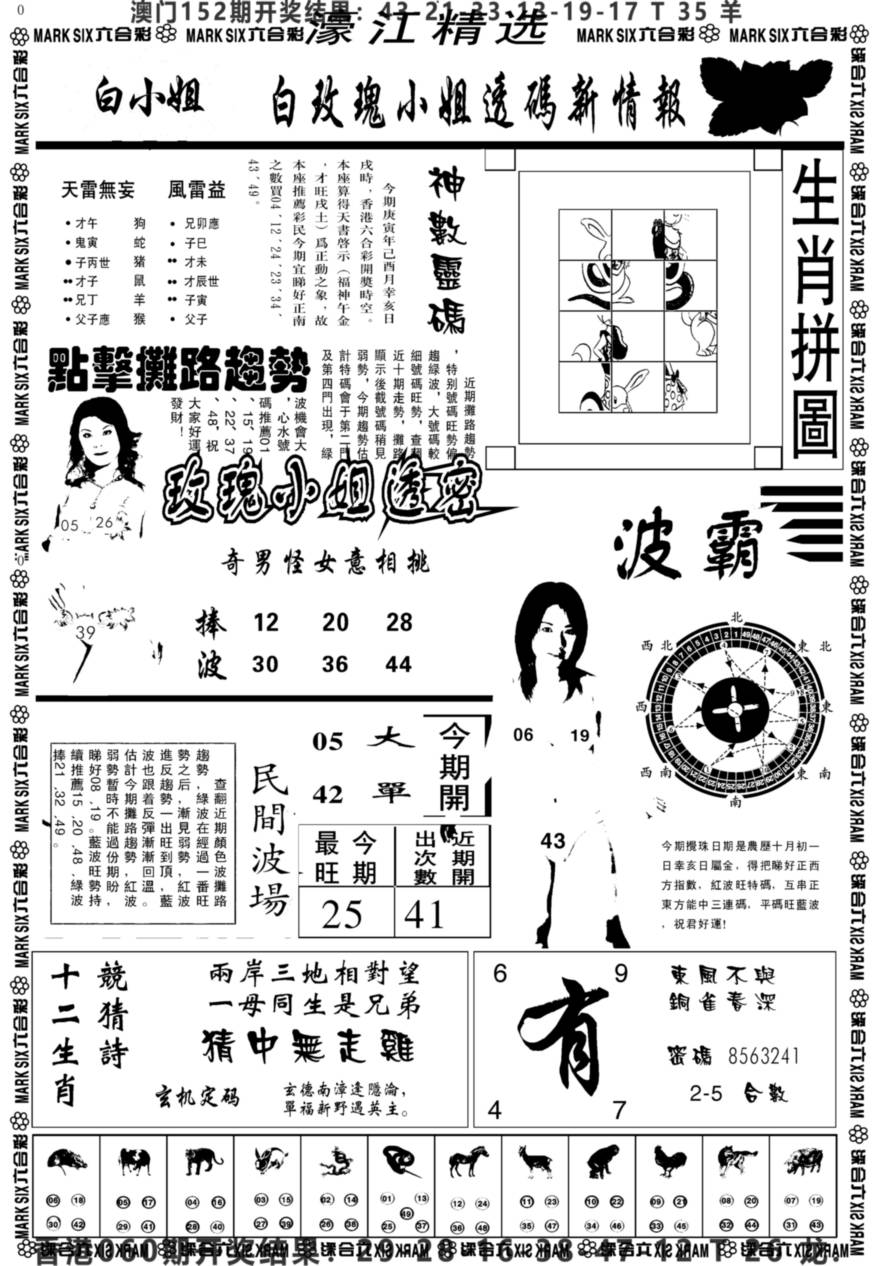 0
澳门152期开奖结果：43-21-33-13-19-17 T 35 羊
MARK SIX六合彩 MARK SIX六合彩 濠江精选 MARK SIX六合彩 MARK SIX六合彩
白小姐 白玫瑰小姐透碼新情報
天雷無妄 風雷益
•才午 狗 •兄卯應
•鬼寅 蛇 •子巳
•子丙世 猪 ••才未
••才子 鼠 ••才辰世
••兄丁 羊 ••子寅
•父子應 猴 •父子
神數靈碼
今期庚寅年己酉月幸亥日
戌時，香港六合彩開獎時空。
本座算得天書啓示（福神午金
，才旺戌土）爲正動之象，故
本座推薦彩民今期宜睇好正南
之數買04、12、24、23、34、
43、49。
生肖拼圖
點擊攤路趨勢
近期攤路趨勢
，特别號碼旺勢偏
趨緑波，大號碼較
細號碼旺勢，查翻
近十期走勢，攤路
顯示後截號碼稍見
弱勢，今期趨勢估
計特碼會于第二門
及第四門出現，緑
波機會大
，心水號
碼推薦01
、15、19
、22、37
、48，祝
大家好運
發財！
05 26
39
玫瑰小姐透密
奇男怪女意相挑
捧波
12 20 28
30 36 44
波霸
北
西北 東北
西 東
西南 東南
南
06 19
43
今期攪珠日期是農歷十月初一
日幸亥日屬金，得把睇好正西
方指數，紅波旺特碼，互串正
東方能中三連碼，平碼旺藍波
，祝君好運!
查翻近期顏色攤路
趨勢，緑波在經過一波旺
勢之后，漸見弱勢，紅番
進反趨勢一出旺到頂，藍
波也跟着反彈漸漸回温。
估計今期攤路趨勢紅波
弱勢暫時不能過份期盼，
睇好08、19。藍波旺勢持
續推薦15、20、48，緑波
捧21、32、49。
民間波場
05 大
42 單
今期開
今期最旺
25
近期開出次數
41
十二生肖
競猜詩
兩岸三地相對望
一母同生是兄弟
猜中無走雞
玄机定码
玄德南漳逢隱淪，
單福新野遇英主。
6 9
有
4 7
東風不與
銅雀春深
密碼 8563241
2-5 合數
06 18 05 17 04 16 03 15 02 14 01 13 12 24 11 23 10 22 09 21 08 20 07 19
49
30 42 29 41 28 40 27 39 26 38 25 37 36 48 35 47 34 46 33 45 32 44 31 43
香港060期开奖结果：29-28-16-38-47-12 T 26 龙.